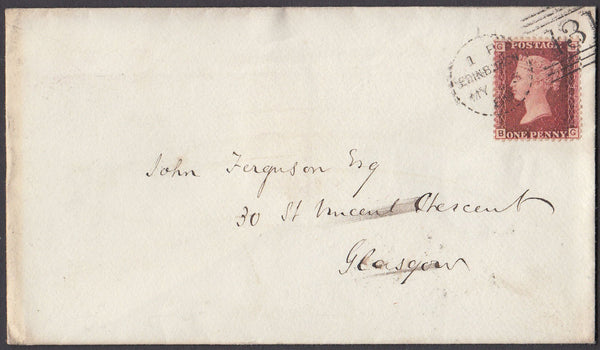 1 P
EDINB
MY
131
G POSTAGE G
B ONE PENNY G
John Ferguson Esq
30 St Vincent Crescent
Glasgow